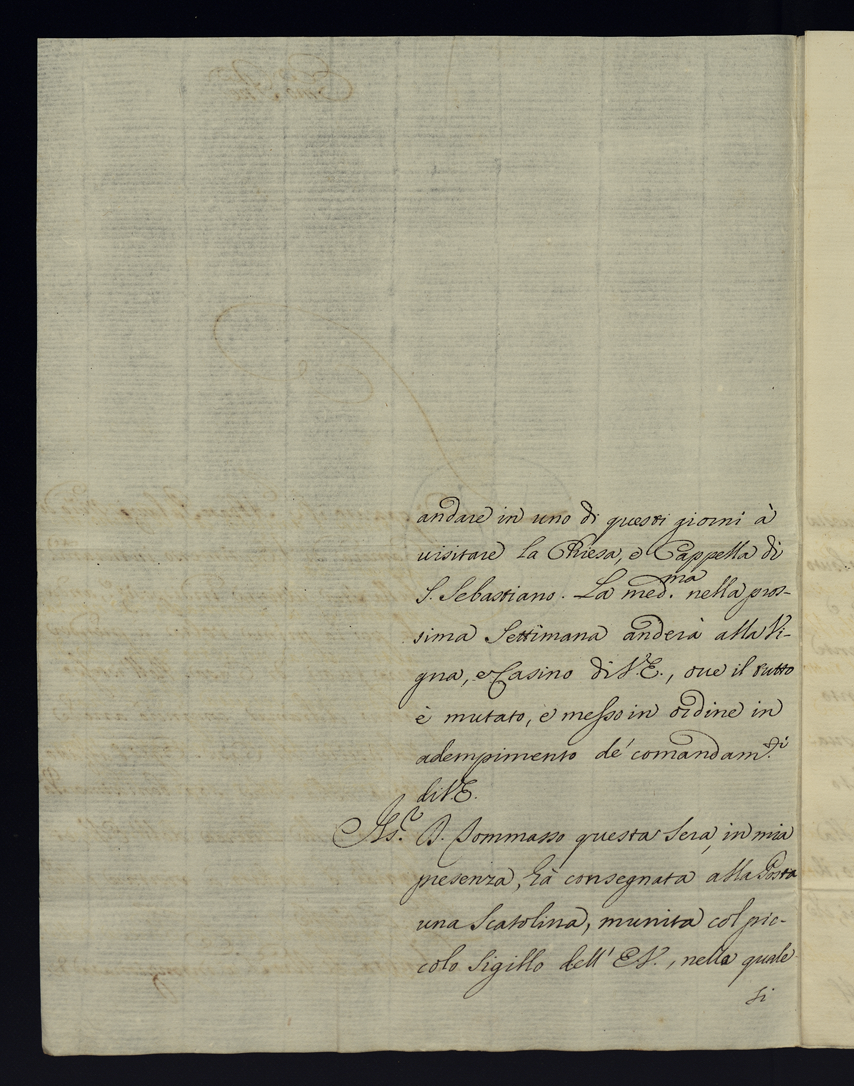 andare in uno di questi giorni à
visitare la Chiesa, e Cappella di
S. Sebastiano. La med.ma nella pros-
sima Settimana anderà alla Vi-
gna, e Casino di V.E., ove il tutto
è mutato, e messo in ordine in
adempimento de' comandam.ti
di V.E.
Il S.r D. Tommasso questa Sera, in mia
presenza, hà consegnata alla Posta
una Scatolina, munita col pic-
colo Sigillo dell' E.V., nella quale
si